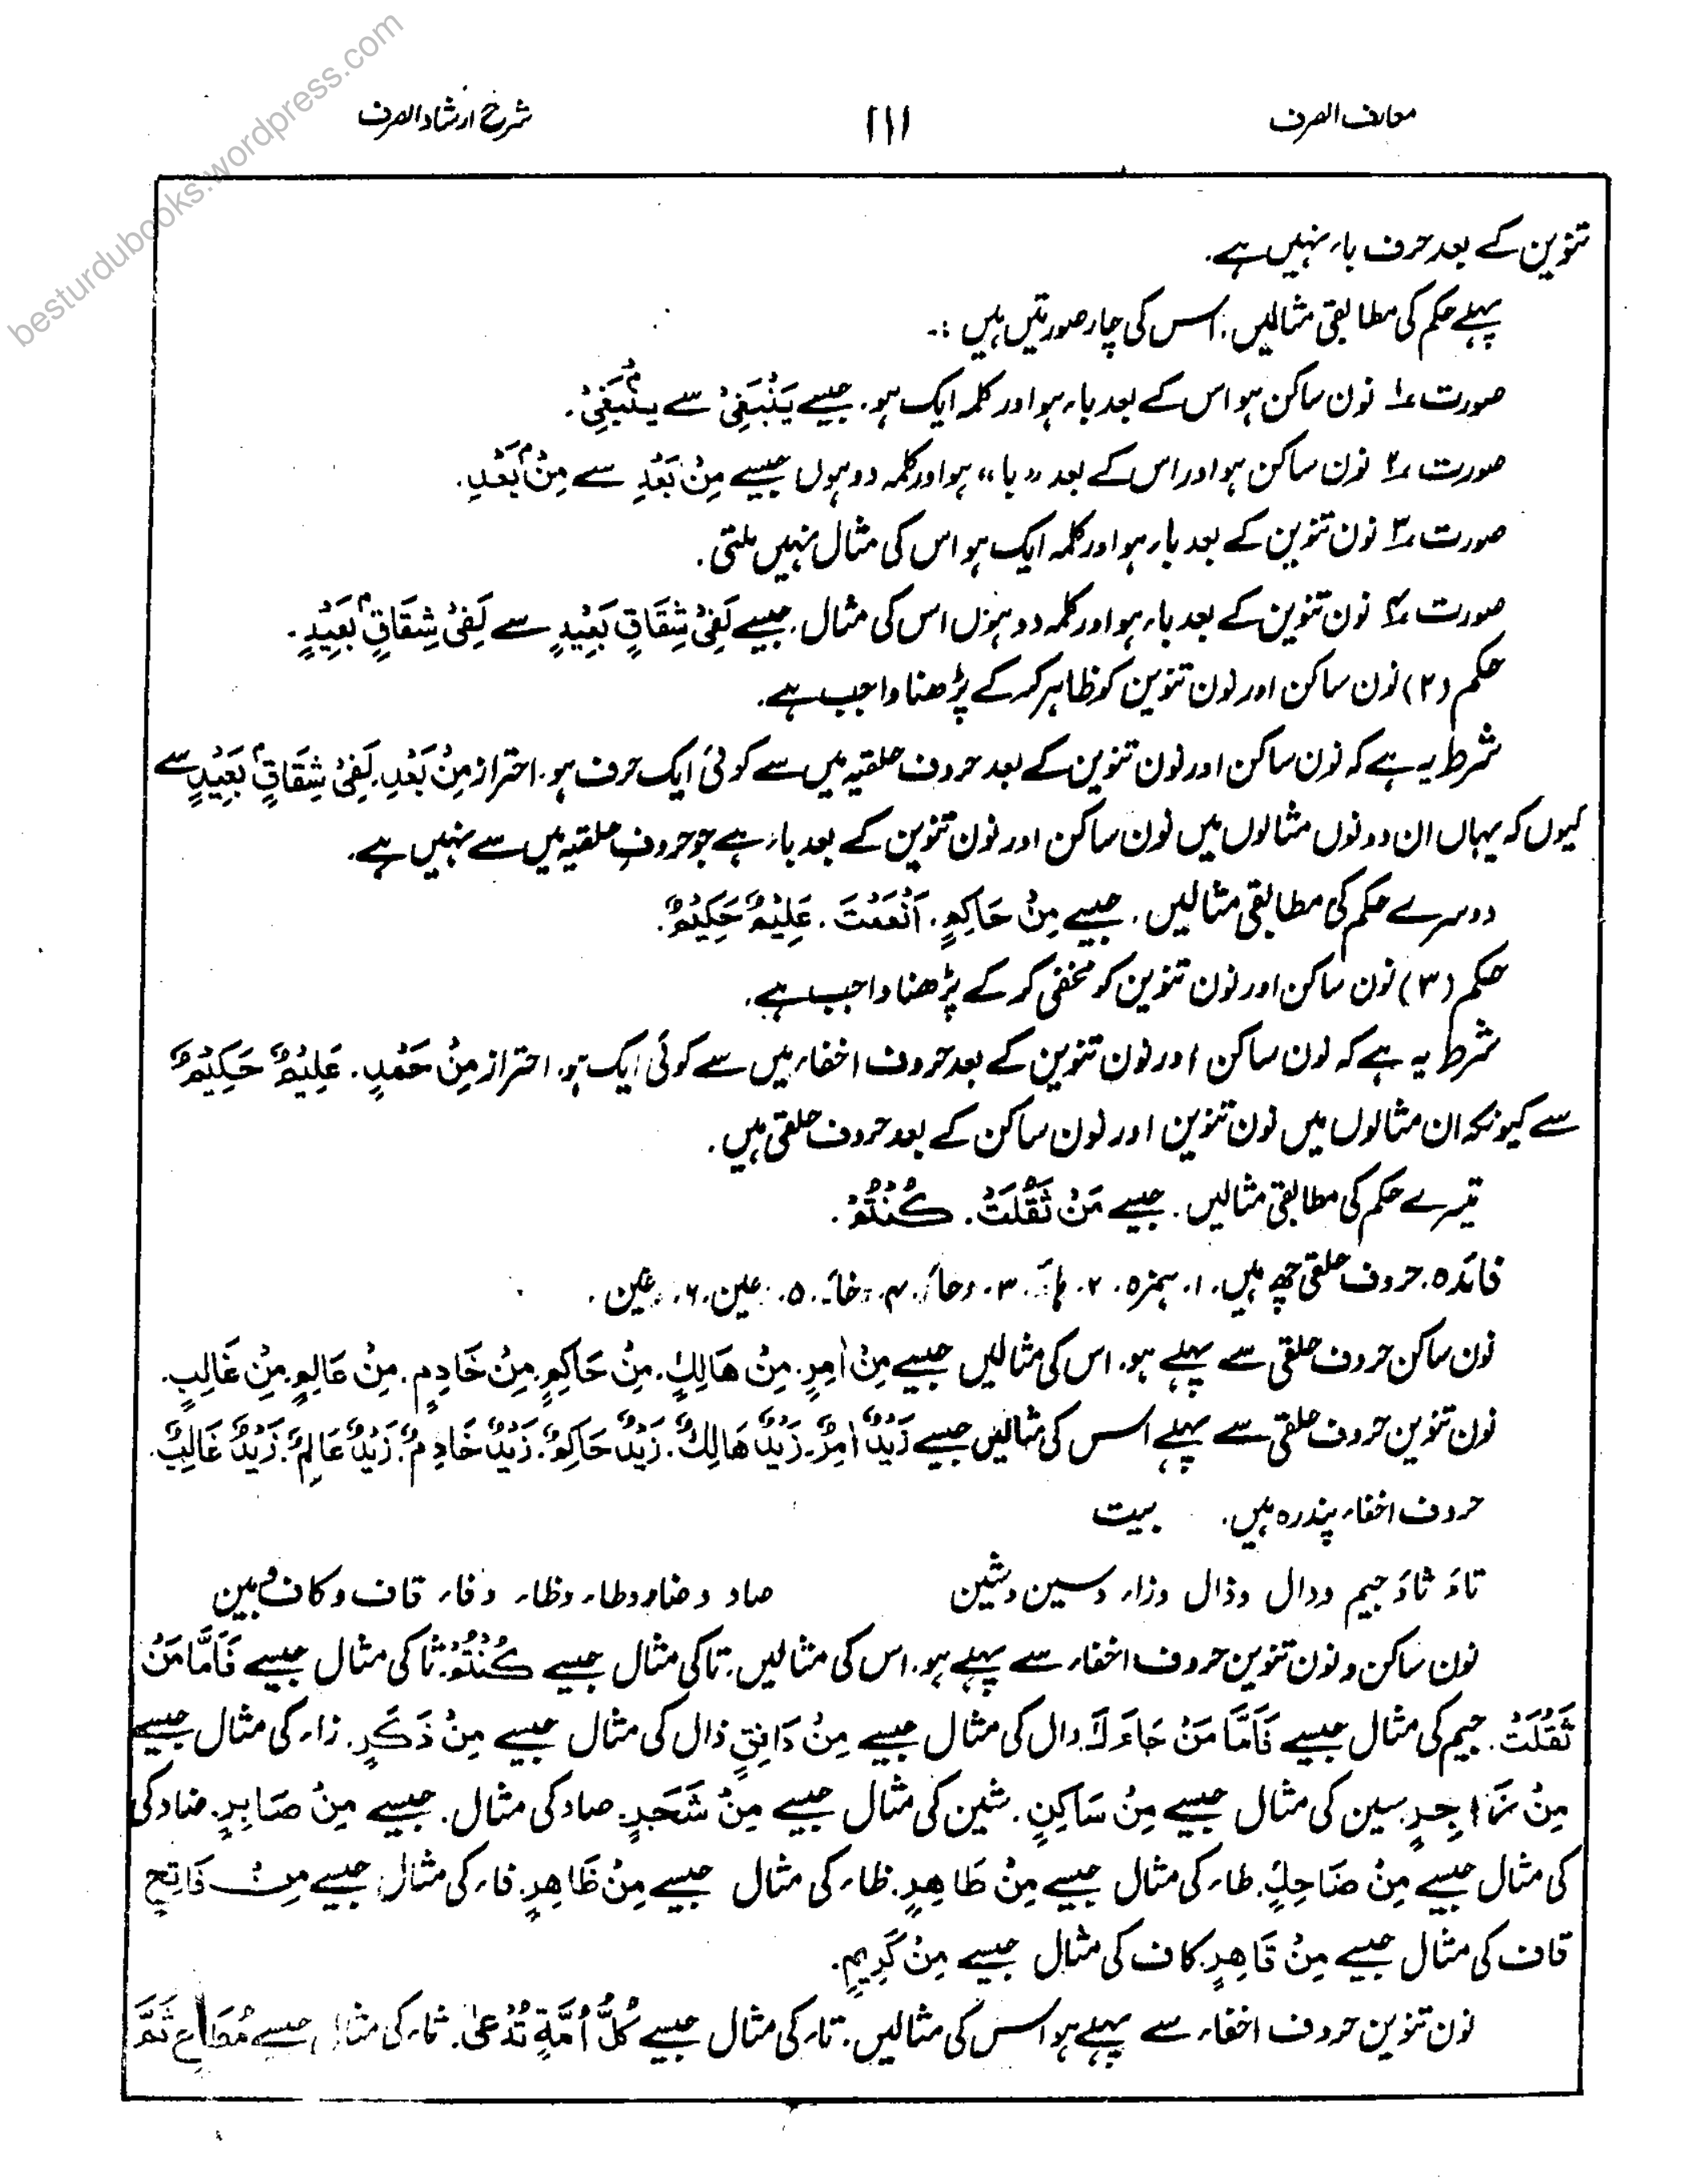 besturdubooks.wordpress.com
معارف الصرف
۱۱۱
شرح ارشاد الصرف
تنوین کے بعد حرف باء نہیں ہے۔
پہلے حکم کی مطابقی مثالیں، اس کی چار صورتیں ہیں :۔
صورت ۱؎ نون ساکن ہو اس کے بعد باء ہو اور کلمہ ایک ہو۔ جیسے یَنْبَغِیْ سے یَنْۢبَغِیْ۔
صورت ۲؎ نون ساکن ہو اور اس کے بعد "با" ہو اور کلمہ دو ہوں جیسے مِنْ بَعْدِ سے مِنْۢ بَعْدِ۔
صورت ۳؎ نون تنوین کے بعد باء ہو اور کلمہ ایک ہو اس کی مثال نہیں ملتی۔
صورت ۴؎ نون تنوین کے بعد باء ہو اور کلمہ دو ہوں اس کی مثال۔ جیسے لَفِیْ شِقَاقٍ بَعِیْدٍ سے لَفِیْ شِقَاقٍۭ بَعِیْدٍ۔
حکم (۲) نون ساکن اور نون تنوین کو ظاہر کر کے پڑھنا واجب ہے۔
شرط یہ ہے کہ نون ساکن اور نون تنوین کے بعد حروف حلقیہ میں سے کوئی ایک حرف ہو۔ احتراز مِنْ بَعْدِ۔ لَفِیْ شِقَاقٍۭ بَعِیْدٍ سے
کیوں کہ یہاں ان دونوں مثالوں میں نون ساکن اور نون تنوین کے بعد باء ہے جو حروف حلقیہ میں سے نہیں ہے۔
دوسرے حکم کی مطابقی مثالیں۔ جیسے مِنْ حَاکِمٍ۔ اَنْعَمْتَ۔ عَلِیْمٌ حَکِیْمٌ۔
حکم (۳) نون ساکن اور نون تنوین کو مخفی کر کے پڑھنا واجب ہے۔
شرط یہ ہے کہ نون ساکن اور نون تنوین کے بعد حروف اخفاء میں سے کوئی ایک ہو۔ احتراز مِنْ حَمْدٍ۔ عَلِیْمٌ حَکِیْمٌ
سے کیونکہ ان مثالوں میں نون تنوین اور نون ساکن کے بعد حروف حلقی ہیں۔
تیسرے حکم کی مطابقی مثالیں۔ جیسے مَنْ ثَقُلَتْ۔ کُنْتُمْ۔
فائدہ۔ حروف حلقی چھ ہیں۔ ۱۔ ہمزہ۔ ۲۔ ہاء۔ ۳۔ حاء۔ ۴۔ خاء۔ ۵۔ عین۔ ۶۔ غین۔
نون ساکن حروف حلقی سے پہلے ہو۔ اس کی مثالیں جیسے مِنْ اٰمِرٍ۔ مِنْ هَالِكٍ۔ مِنْ حَاکِمٍ۔ مِنْ خَادِمٍ۔ مِنْ عَالِمٍ۔ مِنْ غَالِبٍ۔
نون تنوین حروف حلقی سے پہلے اس کی مثالیں جیسے زَیْدٌ اٰمِرٌ۔ زَیْدٌ هَالِكٌ۔ زَیْدٌ حَاکِمٌ۔ زَیْدٌ خَادِمٌ۔ زَیْدٌ عَالِمٌ۔ زَیْدٌ غَالِبٌ۔
حروف اخفاء پندرہ ہیں۔ بیت
تاءَ ثاءَ جیم و دال و ذال و زاء و سین و شین صاد و ضاد و طاء و ظاء و فاء قاف و کاف بین
نون ساکن و نون تنوین حروف اخفاء سے پہلے ہو۔ اس کی مثالیں۔ تا کی مثال جیسے کُنْتُمْ۔ ثا کی مثال جیسے فَاَمَّا مَنْ
ثَقُلَتْ۔ جیم کی مثال جیسے فَاَمَّا مَنْ جَاءَكَ۔ دال کی مثال جیسے مِنْ دَافِقٍ ذال کی مثال جیسے مِنْ ذَکَرٍ۔ زاء کی مثال جیسے
مِنْ زَاجِرٍ۔ سین کی مثال جیسے مِنْ سَاکِنٍ۔ شین کی مثال جیسے مِنْ شَجَرٍ۔ صاد کی مثال۔ جیسے مِنْ صَابِرٍ۔ ضاد کی
کی مثال جیسے مِنْ ضَاحِكٍ۔ طاء کی مثال جیسے مِنْ طَاهِرٍ۔ ظاء کی مثال جیسے مِنْ ظَاهِرٍ۔ فاء کی مثال جیسے مِنْ فَاتِحٍ
قاف کی مثال جیسے مِنْ قَاهِرٍ۔ کاف کی مثال جیسے مِنْ کَرِیمٍ۔
نون تنوین حروف اخفاء سے پہلے ہو اس کی مثالیں۔ تاء کی مثال جیسے کُلُّ اُمَّةٍ تُدْعیٰ۔ ثاء کی مثال جیسے مُطَاعٍ ثَمَّ